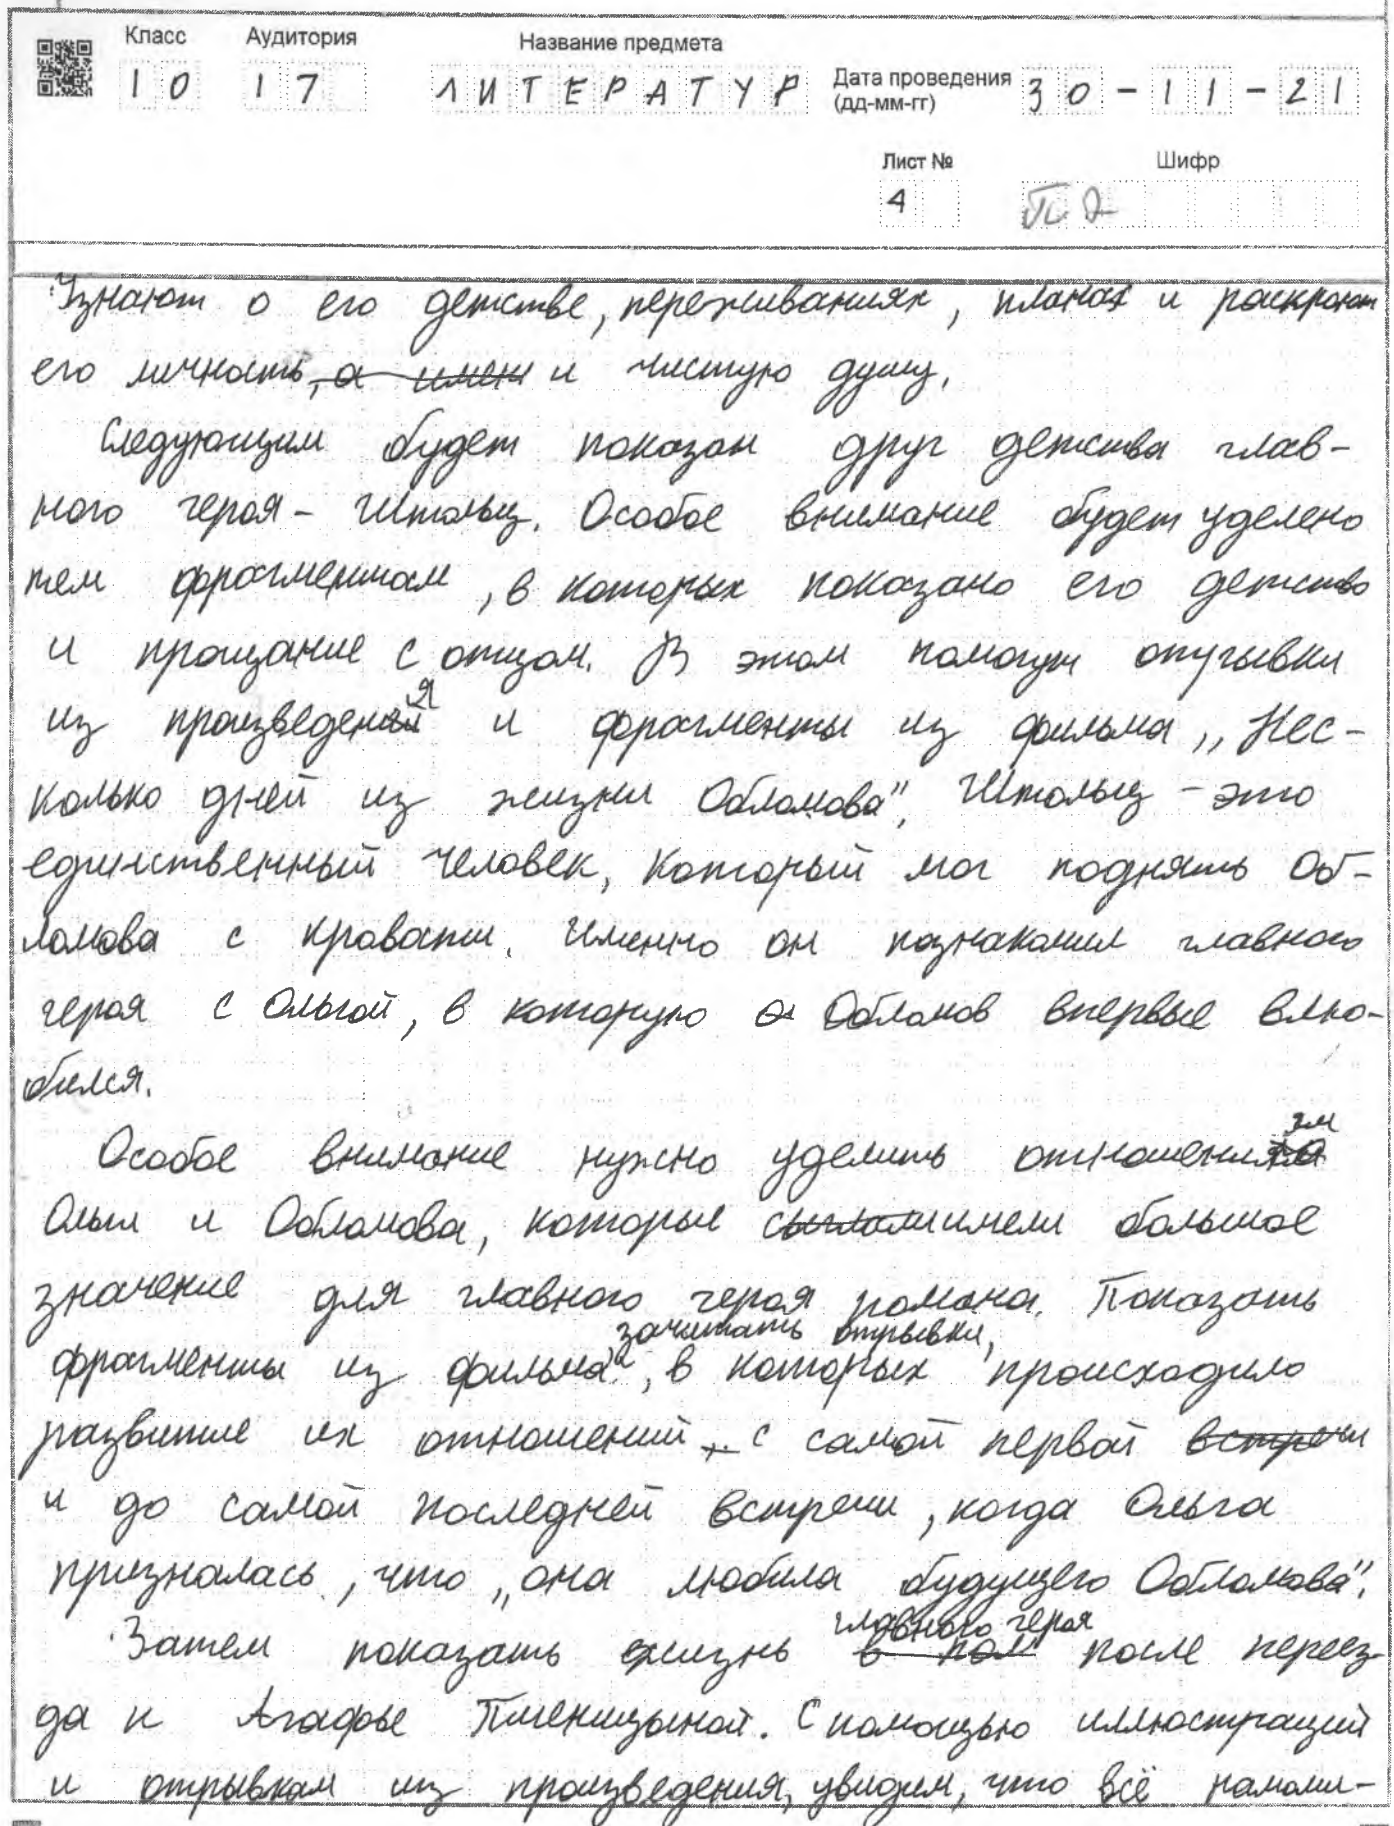 Класс Аудитория Название предмета
10 17 ЛИТЕРАТУР Дата проведения (дд-мм-гг) 30-11-21
Лист № Шифр
4
Узнают о его детстве, переживаниях, планах и раскроют
его личность, а имен и чистую душу.
Следующим будет показан друг детства глав-
ного героя - Штольц. Особое внимание будет уделено
тем фрагментам, в которых показано его детство
и прощание с отцом. В этом помогут отрывки
из произведения и фрагменты из фильма „Нес-
колько дней из жизни Обломова". Штольц - это
единственный человек, который мог поднять Об-
ломова с кровати. Именно он познакомил главного
героя с Ольгой, в которую Обломов впервые влю-
бился.
Особое внимание нужно уделить отношениям
Ольги и Обломова, которые имели большое
значение для главного героя романа. Показать
фрагменты из фильма, зачитать отрывки, в которых происходило
развитие их отношений, с самой первой встречи
и до самой последней встречи, когда Ольга
призналась, что „она любила будущего Обломова".
Затем показать жизнь главного героя после переез-
да к Агафье Пшеницыной. С помощью иллюстраций
и отрывкам из произведения, увидим, что всё напоми-